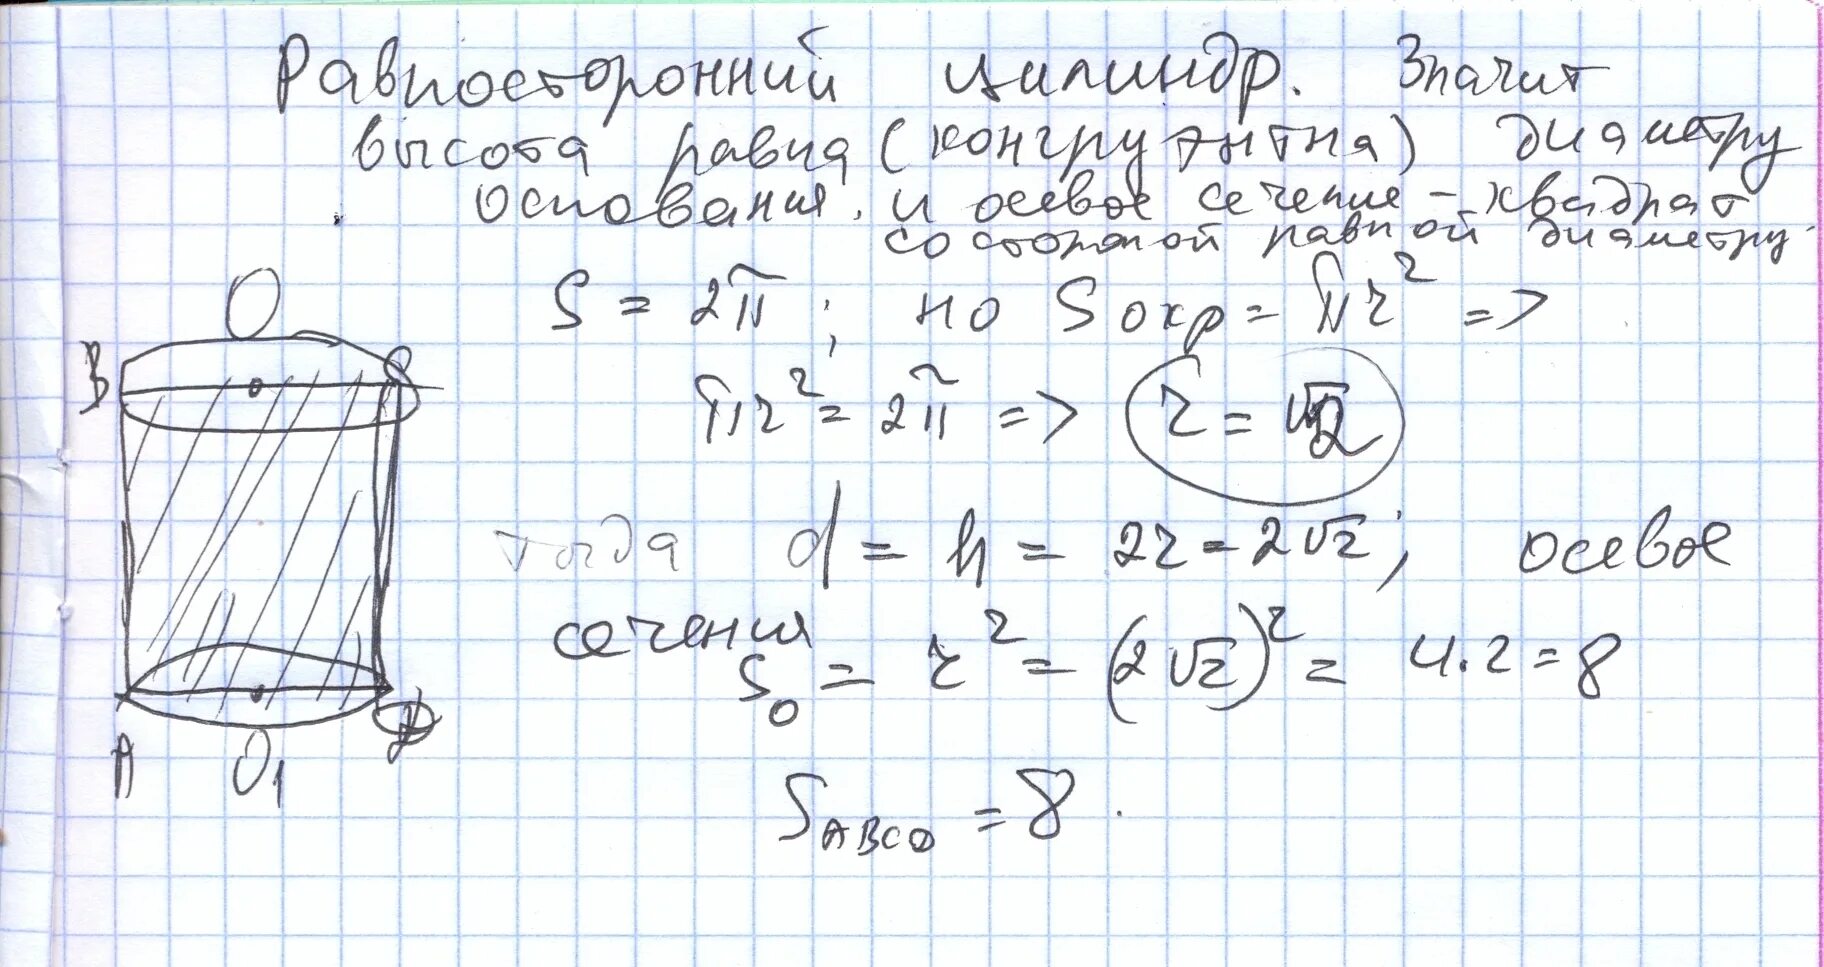 Равносторонний цилиндр. Значит
высота равна (конгруэнтна) диаметру
основания. и осевое сечение - квадрат
со стороной равной диаметру.
S = 2π ; но Sокр = πr² =>
πr² = 2π => r = √2
тогда d = h = 2r = 2√2 ; осевое
сечения
S₀ = r² = (2√2)² = 4·2 = 8
S ABCD = 8.
O
B C
A O₁ D